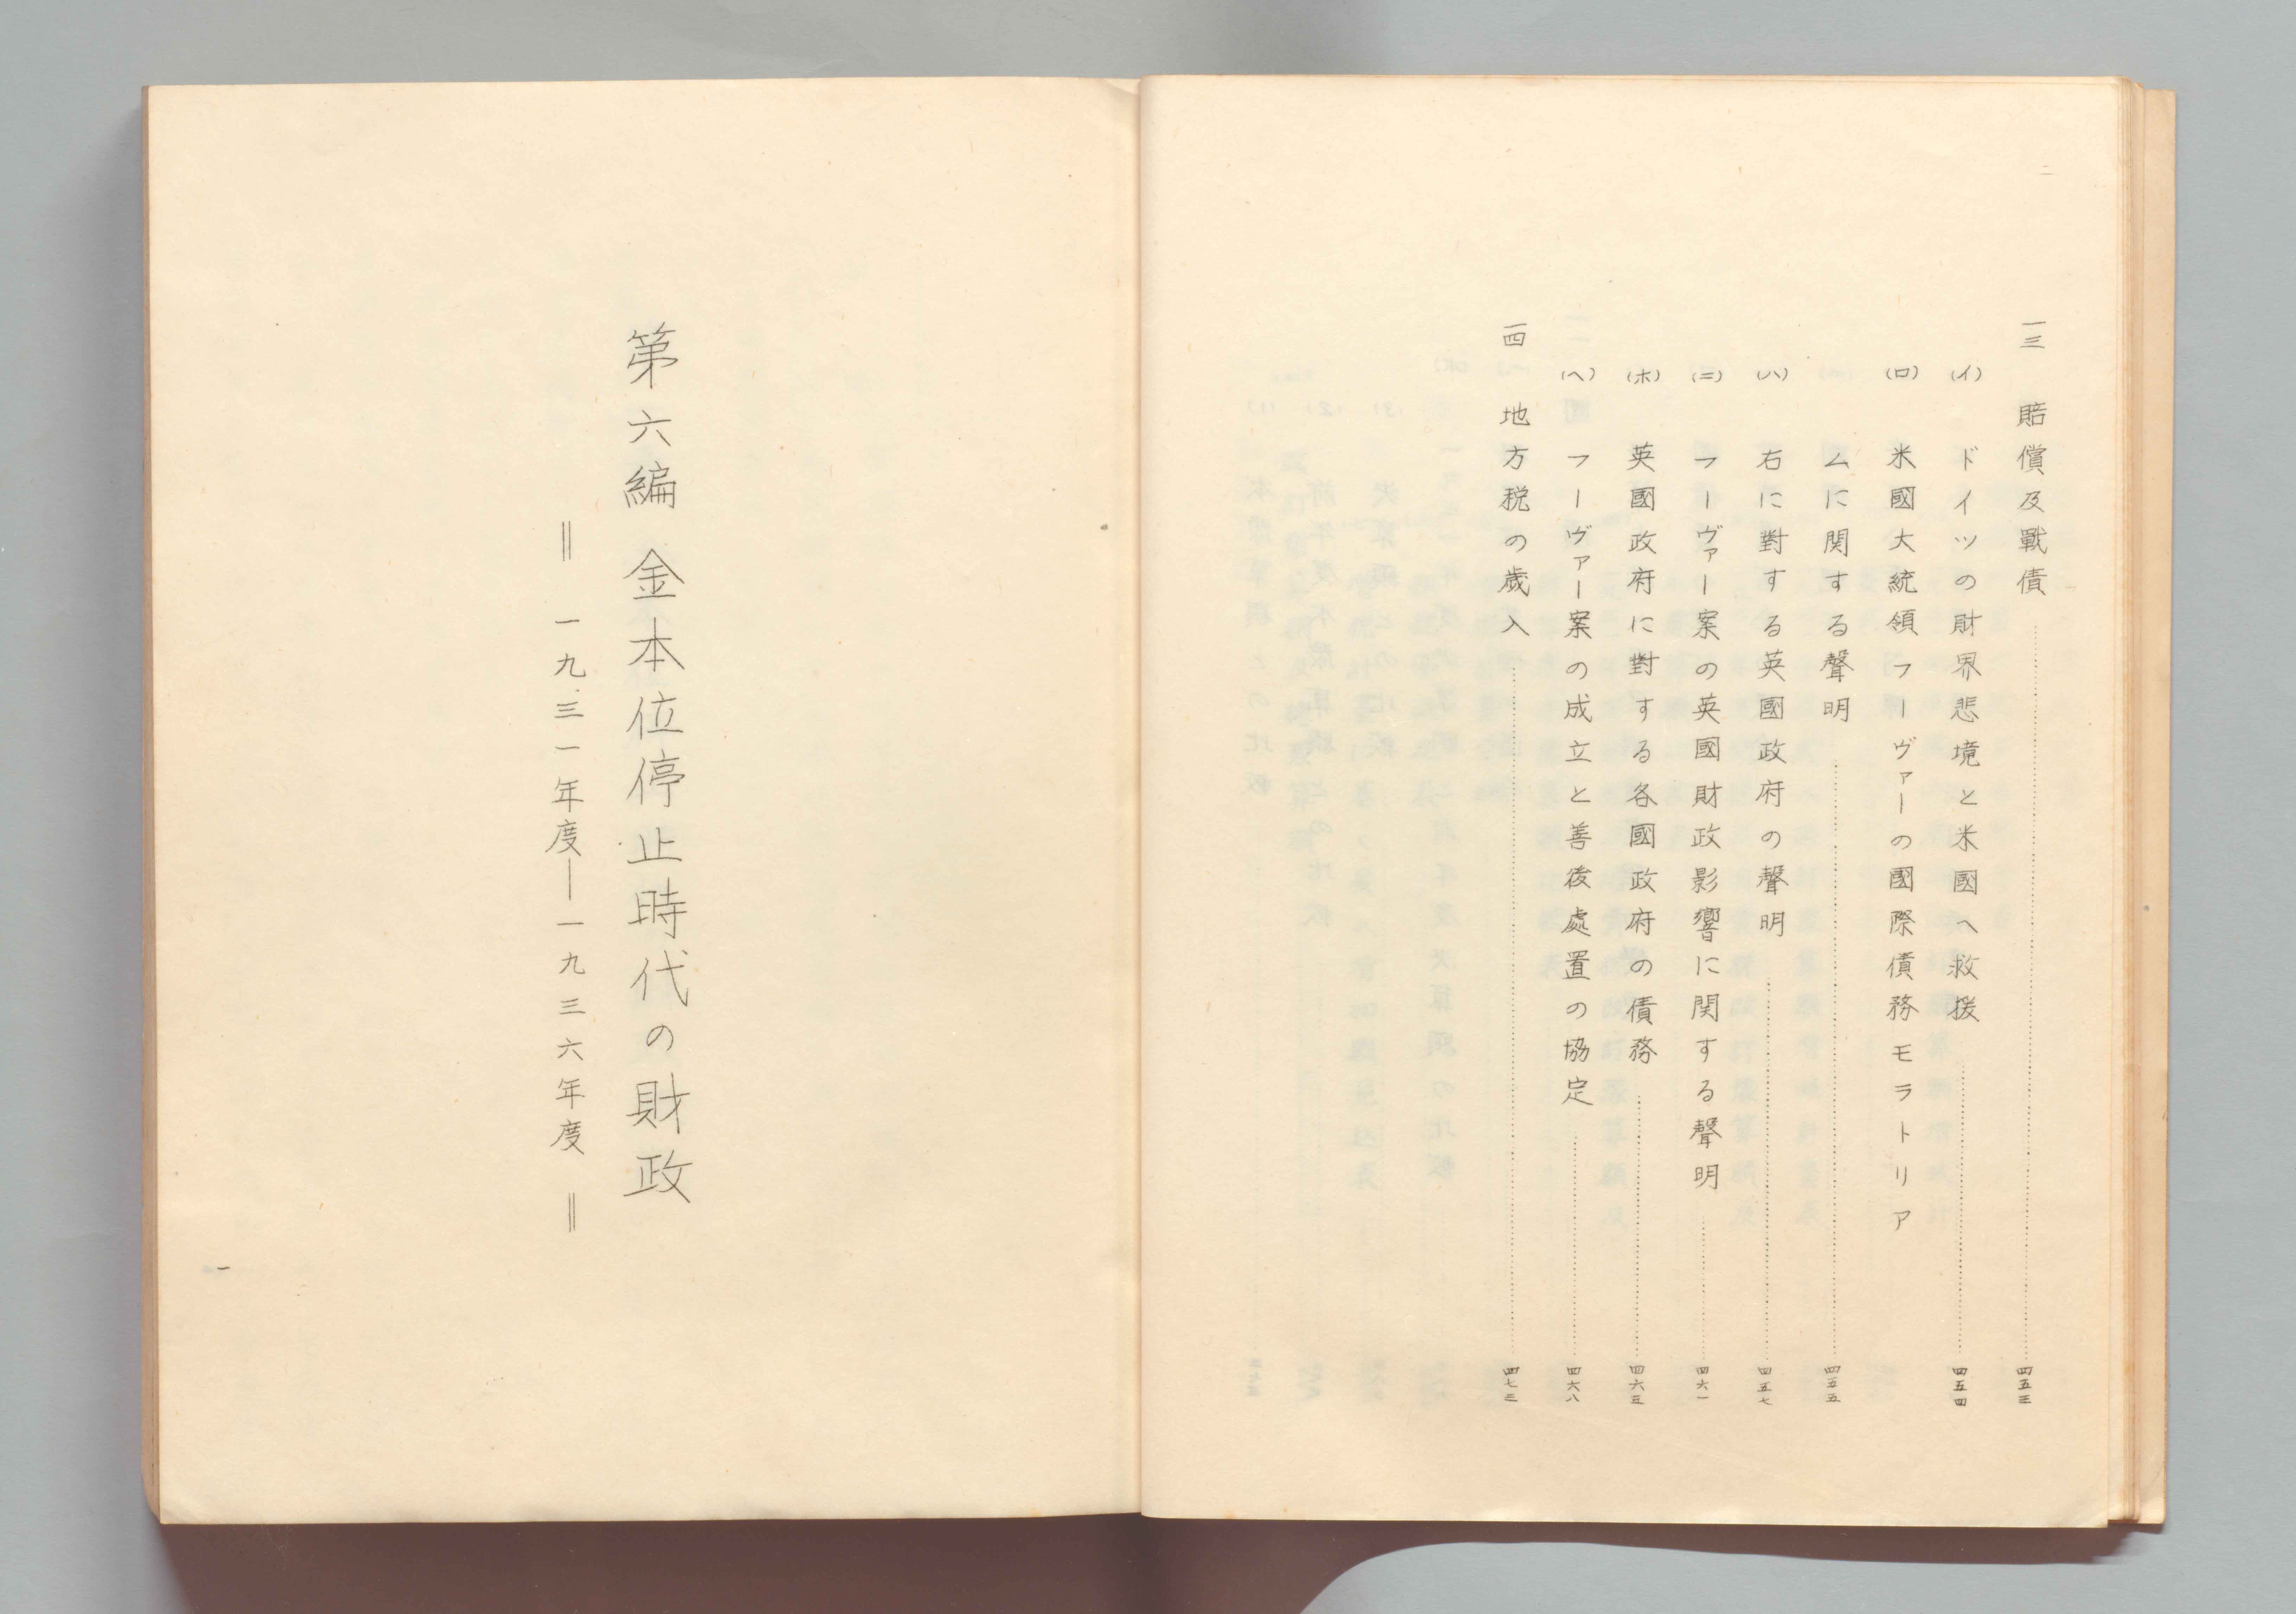 二
一三 賠償及戰債……四五三
(イ) ドイツの財界悲境と米國へ救援……四五四
(ロ) 米國大統領フーヴァーの國際債務モラトリア
ムに関する聲明……四五五
(ハ) 右に對する英國政府の聲明……四五七
(ニ) フーヴァー案の英國財政影響に関する聲明……四六一
(ホ) 英國政府に對する各國政府の債務……四六三
(ヘ) フーヴァー案の成立と善後處置の協定……四六八
一四 地方税の歳入……四七三
第六編 金本位停止時代の財政
‖ 一九三一年度―一九三六年度 ‖
一